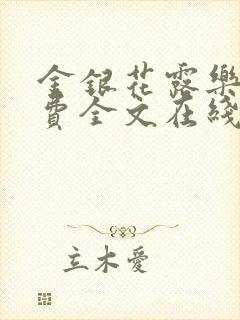 金銀花露樂
費全文在綫
立木愛